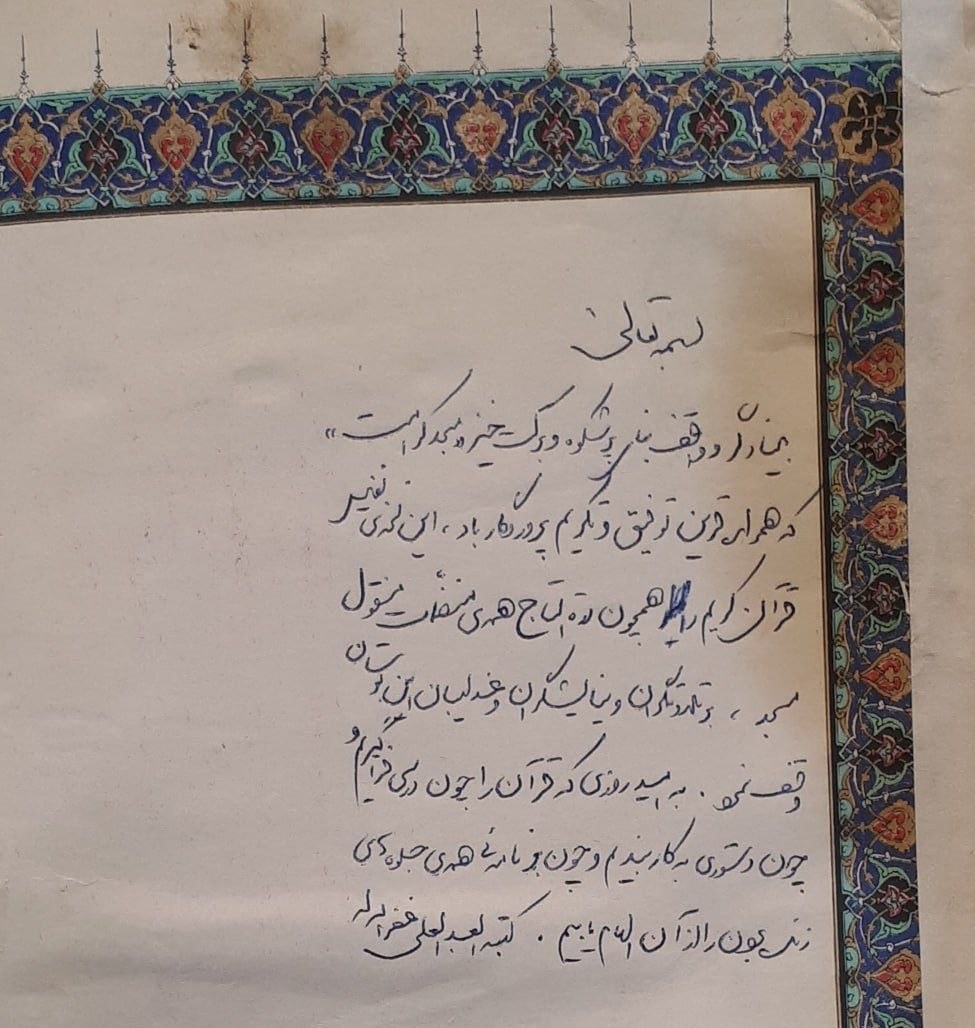 بسمه تعالی
بنیادگر و واقف بنای پرشکوه و برکت خیز «مسجد کرامت»
که همواره قرین توفیق و تکریم پروردگار باد، این نسخه‌ی نفیس
قرآن کریم را همچون درة التاج همه‌ی منضمات منقول
مسجد، بر تلاوتگران و نیایشگران و عندلیبان این بوستان
وقف نمود. به امید روزی که قرآن را چون درسی فراگیریم و
چون دستوری به کار بندیم و چون برنامه‌ای همه‌ی جلوه‌های
زندگیمون را از آن الهام یابیم. کتبه العبد العلی غفر الله له